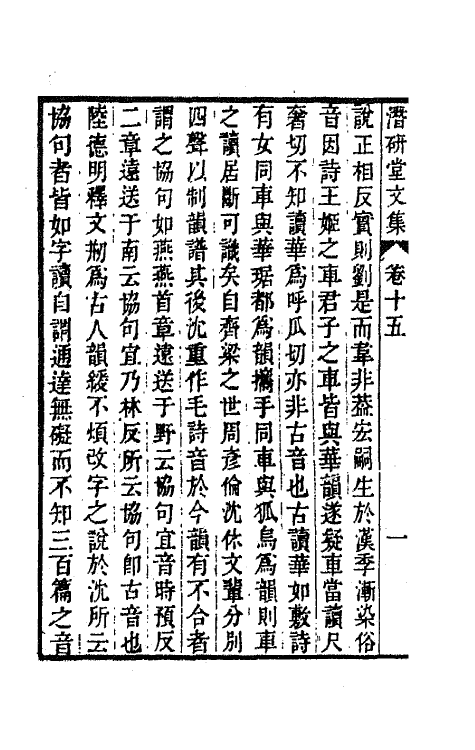 潛研堂文集 卷十五 一
說正相反實則劉是而韋非葢宏嗣生於漢季漸染俗
音因詩王姬之車君子之車皆與華韻遂疑車當讀尺
奢切不知讀華爲呼瓜切亦非古音也古讀華如敷詩
有女同車與華琚都爲韻攜手同車與狐烏爲韻則車
之讀居斷可識矣自齊梁之世周彥倫沈休文輩分別
四聲以制韻譜其後沈重作毛詩音於今韻有不合者
謂之協句如燕燕首章遠送于野云協句宜音時預反
二章遠送于南云協句宜乃林反所云協句卽古音也
陸德明釋文剏爲古人韻緩不煩改字之說於沈所云
協句者皆如字讀自謂通達無礙而不知三百篇之音